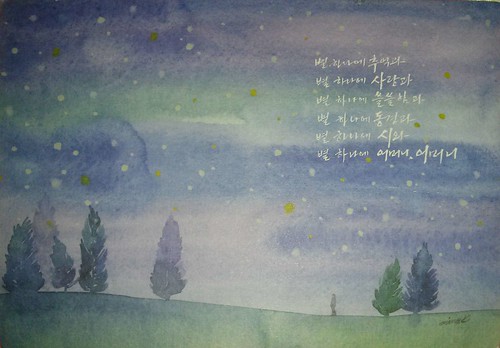 별 하나에 추억과
별 하나에 사랑과
별 하나에 쓸쓸함과
별 하나에 동경과
별 하나에 시와
별 하나에 어머니, 어머니